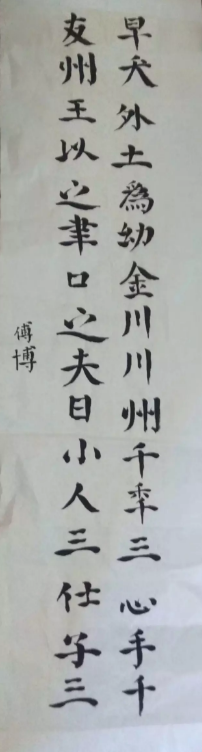 早天外土為幼金川川州千年三心手千
友州王以之聿口之夫日小人三仕子三
傅博